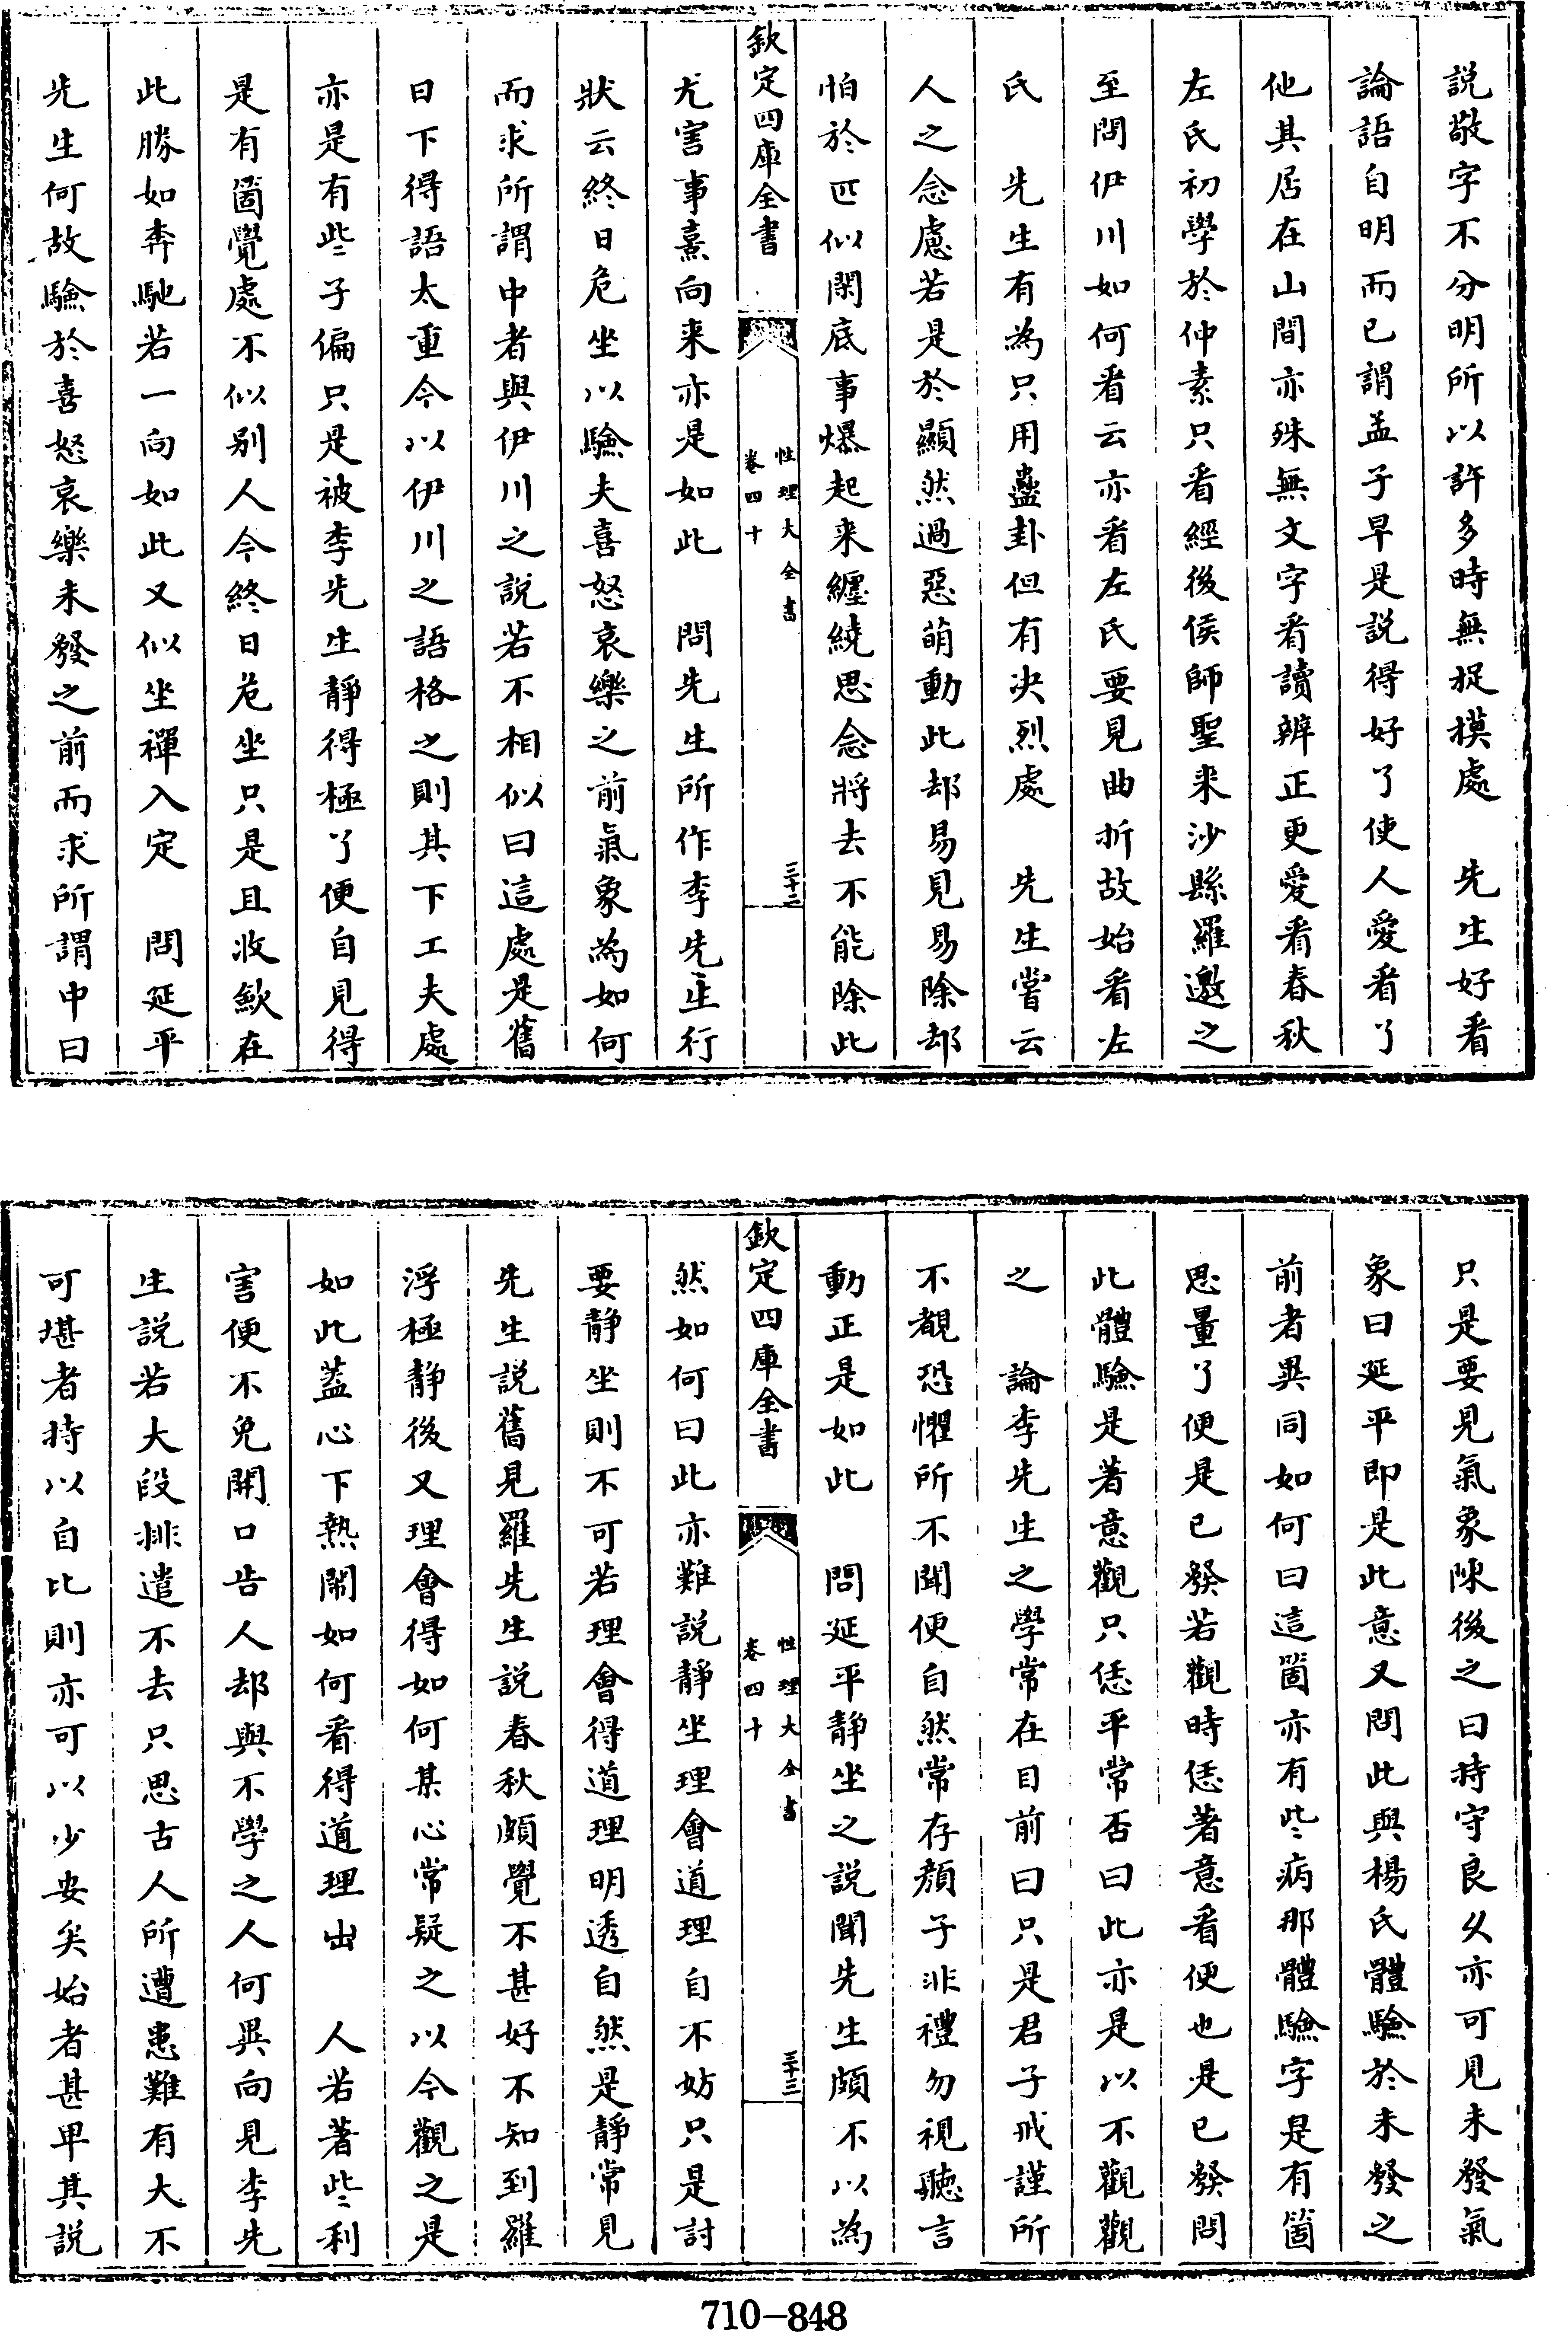 説敬字不分明所以許多時無捉摸處　先生好看
論語自明而已謂孟子早是説得好了使人愛看了
他其居在山間亦殊無文字看讀辨正更愛看春秋
左氏初學於仲素只看經後侯師聖来沙縣羅邀之
至問伊川如何看云亦看左氏要見曲折故始看左
氏　先生有為只用蠱卦但有决烈處　先生嘗云
人之念慮若是於顯然過惡萌動此却易見易除却
怕於匹似閑底事爆起来纏繞思念將去不能除此
欽定四庫全書
性理大全書
卷四十
三十二
尤害事熹向来亦是如此　問先生所作李先生行
狀云終日危坐以驗夫喜怒哀樂之前氣象為如何
而求所謂中者與伊川之説若不相似曰這處是舊
日下得語太重今以伊川之語格之則其下工夫處
亦是有些子偏只是被李先生靜得極了便自見得
是有箇覺處不似别人今終日危坐只是且收斂在
此勝如奔馳若一向如此又似坐禪入定　問延平
先生何故驗於喜怒哀樂未發之前而求所謂中曰
只是要見氣象陳後之曰持守良久亦可見未發氣
象曰延平即是此意又問此與楊氏體驗於未發之
前者異同如何曰這箇亦有些病那體驗字是有箇
思量了便是已發若觀時恁著意看便也是已發問
此體驗是著意觀只恁平常否曰此亦是以不觀觀
之　論李先生之學常在目前曰只是君子戒謹所
不覩恐懼所不聞便自然常存顔子非禮勿視聽言
動正是如此　問延平靜坐之説聞先生頗不以為
欽定四庫全書
性理大全書
卷四十
三十三
然如何曰此亦難説靜坐理會道理自不妨只是討
要静坐則不可若理會得道理明透自然是靜常見
先生説舊見羅先生説春秋頗覺不甚好不知到羅
浮極静後又理會得如何某心常疑之以今觀之是
如此蓋心下熱鬧如何看得道理出　人若著些利
害便不免開口告人却與不學之人何異向見李先
生説若大段排遣不去只思古人所遭患難有大不
可堪者持以自比則亦可以少安矣始者甚卑其説
710-848